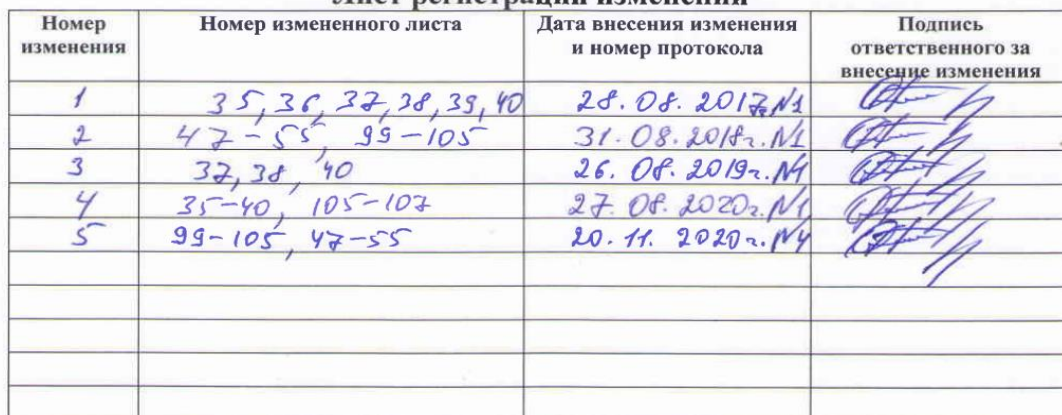 Лист регистрации изменений
Номер изменения Номер измененного листа Дата внесения изменения и номер протокола Подпись ответственного за внесение изменения
1 35, 36, 37, 38, 39, 40 28. 08. 2017г. №1
2 47-55, 99-105 31. 08. 2018г. №1
3 37, 38, 40 26. 08. 2019г. №1
4 35-40, 105-107 27. 08. 2020г. №1
5 99-105, 47-55 20. 11. 2020г. №4